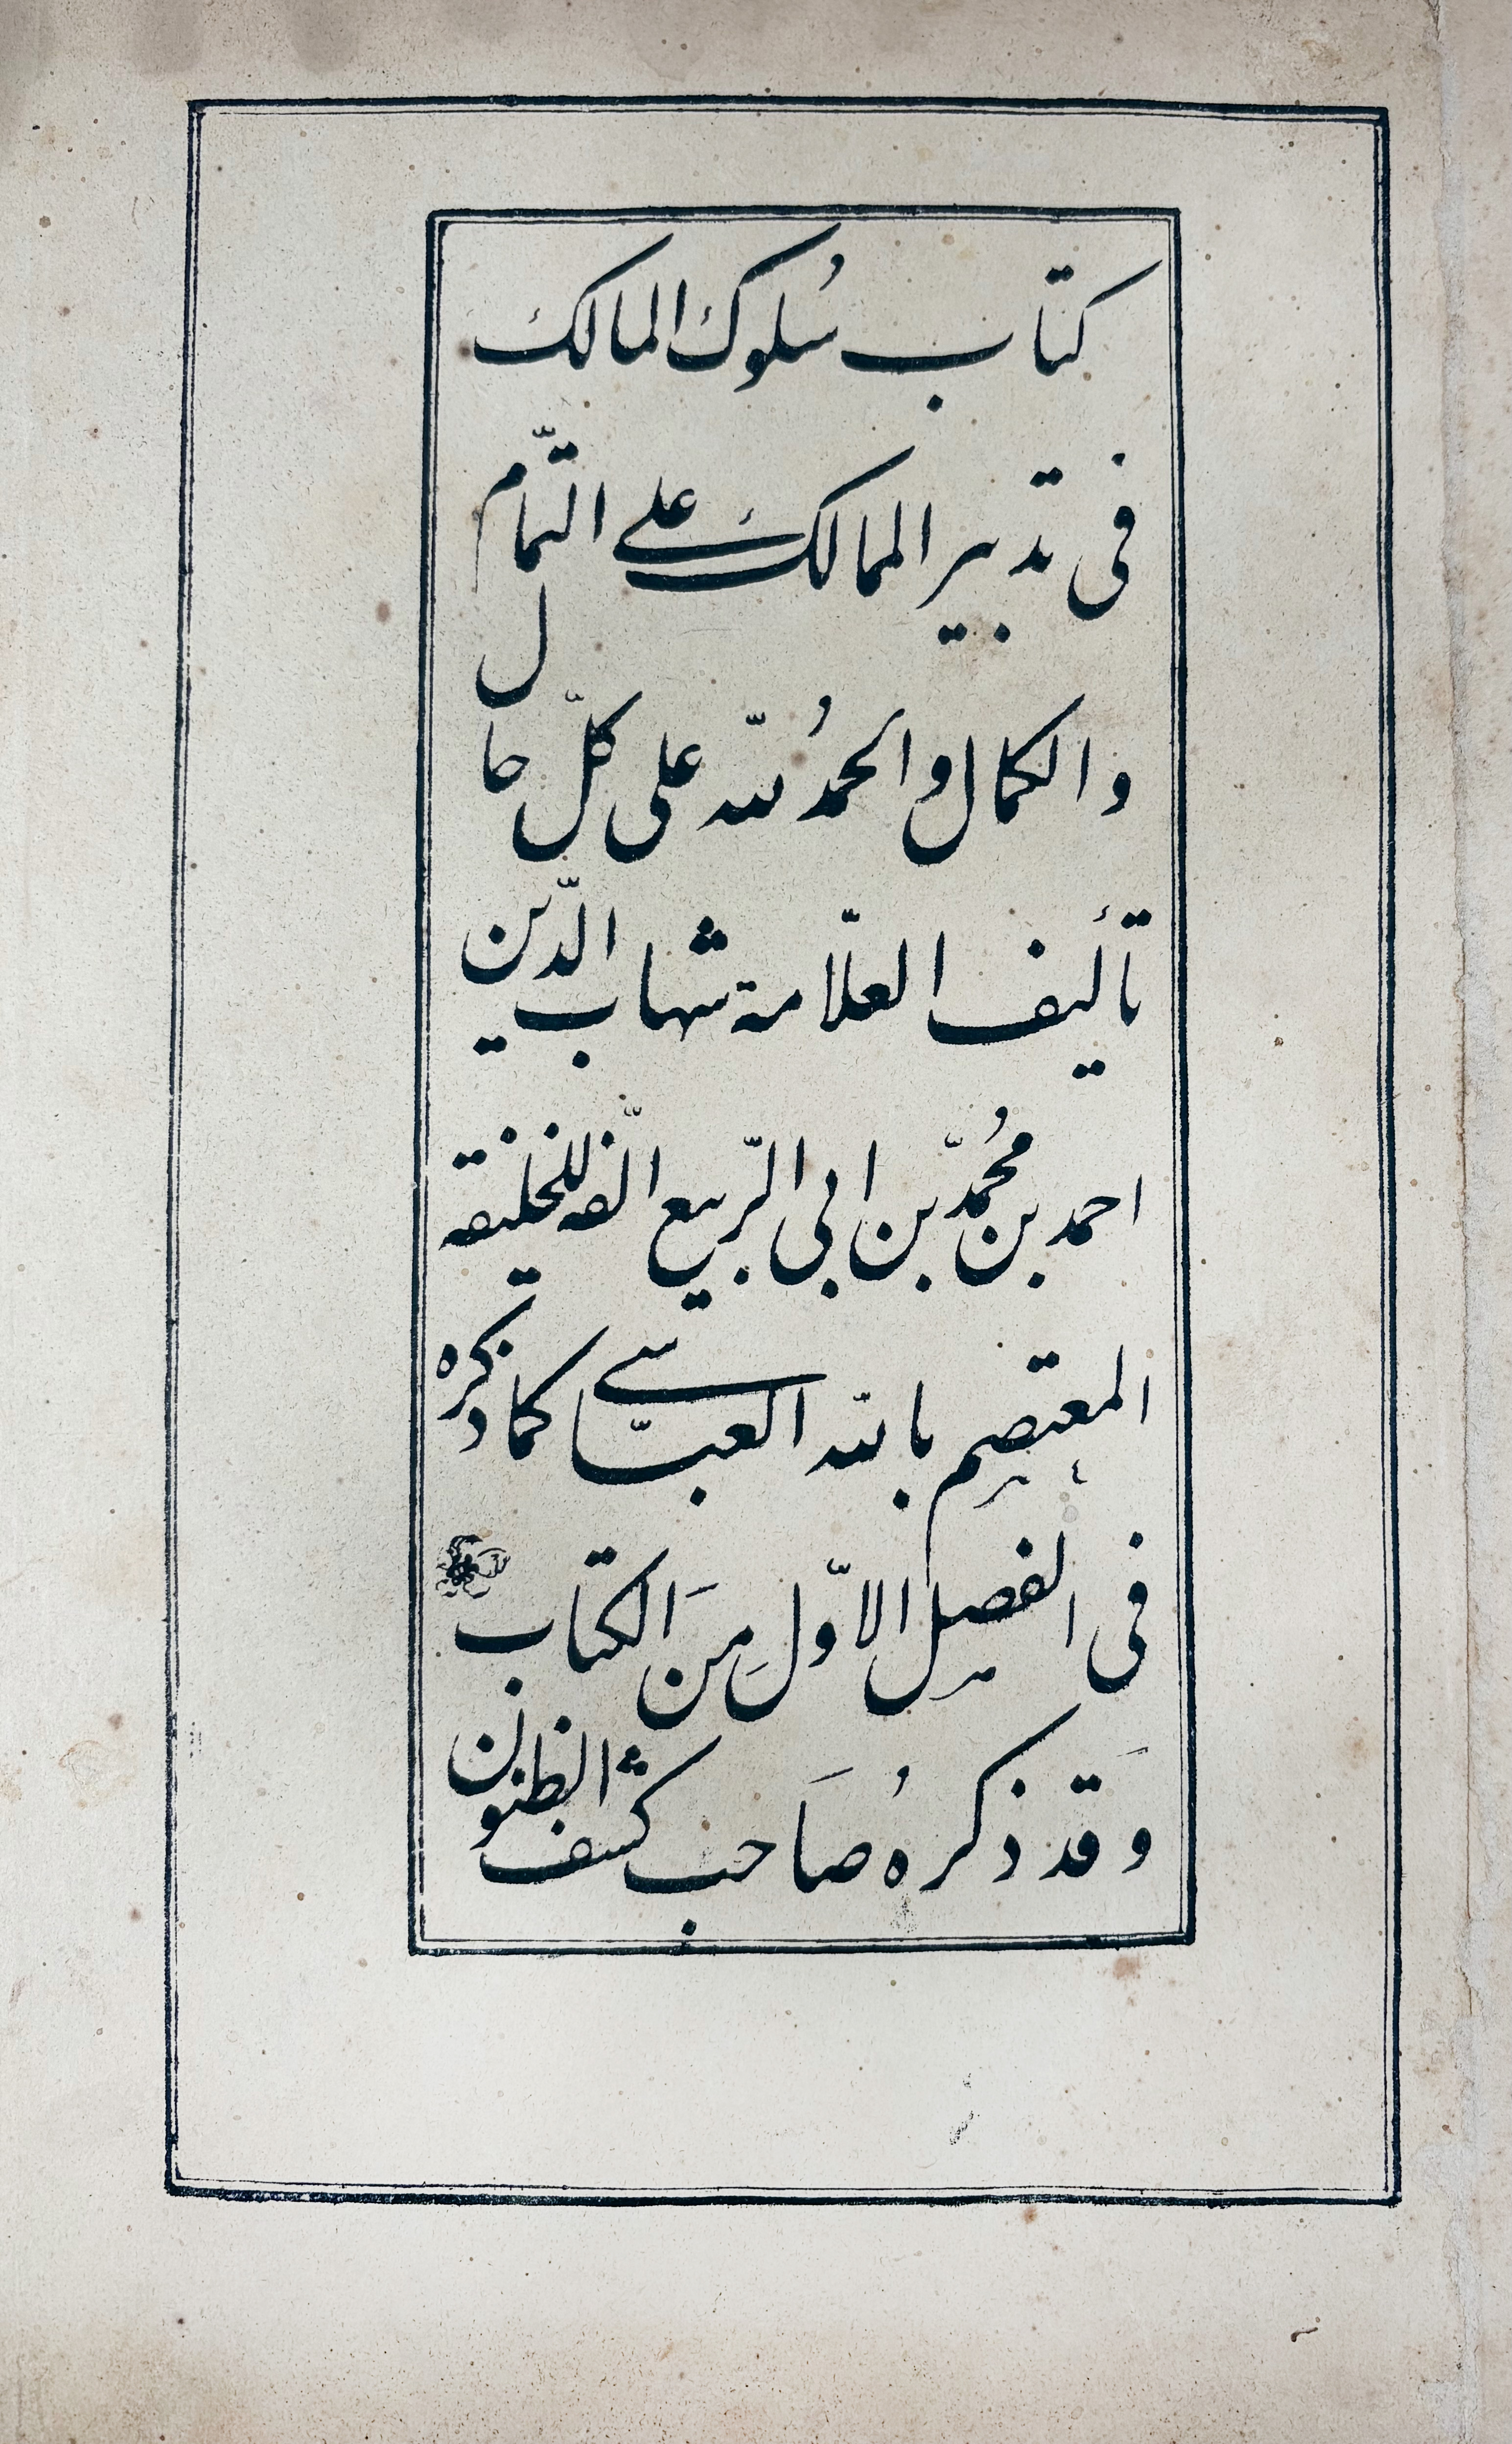 كتاب سُلوك المالك
فى تدبير الممالك على التّمام
والكمال والحمدُ للّه على كلّ حال
تأليف العلّامة شهاب الدّين
احمد بن مُحمّد بن ابى الرّبيع الّفه للخليفة
المعتصم باللّه العبّاسى كما ذكره
فى الفصل الاوّلِ مِنَ الكتاب
وَقد ذكرهُ صَاحب كشف الظنون